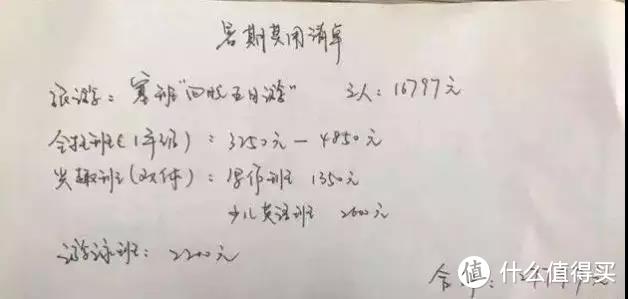 暑期费用清单
旅游：塞班“四晚五日游” 三人：16797元
全托班（1年级）：3250元—4850元
兴趣班（双休）：写作班 1350元
少儿英语班 2600元
游泳班：2200元
合
值 什么值得买